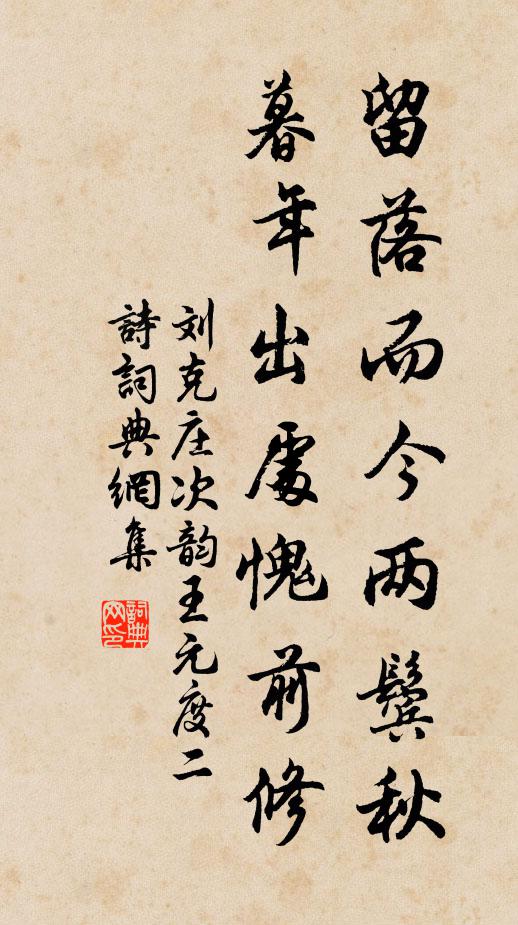 留落而今两鬓秋
暮年出處愧前修
刘克庄次韵王元度二
詩詞典網集
詞典網印